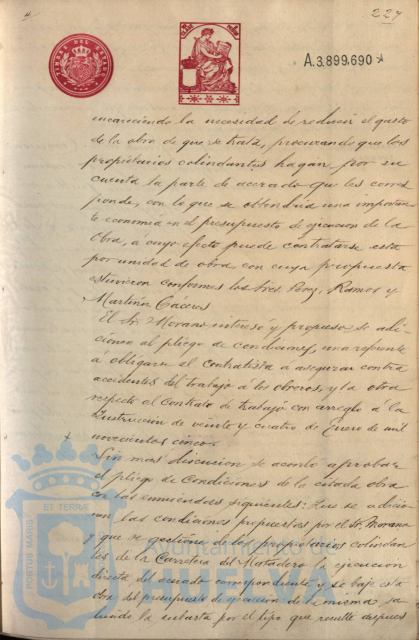 227
TIMBRE DEL ESTADO
A.3.899.690
encareciendo la necesidad de reducir el gasto
de la obra de que se trata, procurando que los
propietarios colindantes hagan por su
cuenta la parte de acerado que les corres
ponde, con lo que se obtendrá una importan
te economía en el presupuesto de ejecucion de la
obra, á cuyo efecto puede contratarse esta
por unidad de obra, con cuya propuesta
estuvieron conformes los Sres Perez, Ramos y
Martinez Cáceres
El Sr. Morano interesó y propuso se adi-
cione al pliego de condiciones, una referente
á obligar al contratista á asegurar contra
accidentes del trabajo á los obreros, y la otra
respecto al Contrato de trabajo con arreglo á la
Instruccion de veinte y cuatro de Enero de mil
novecientos cinco.
Sin mas discusion se acordó aprobar
el pliego de condiciones de la citada obra
con las enmiendas siguientes: Que se adicio
nen las condiciones propuestas por el Sr. Morano
y que se gestione de los propietarios colindan
tes de la Carretera del Matadero la ejecucion
directa del acerado correspondiente y se baje esta
obra del presupuesto de ejecucion de la misma, sa
liendo la subasta por el tipo que resulte despues
Ayuntamiento de
HUELVA
PORTUS MARIS ET TERRÆ